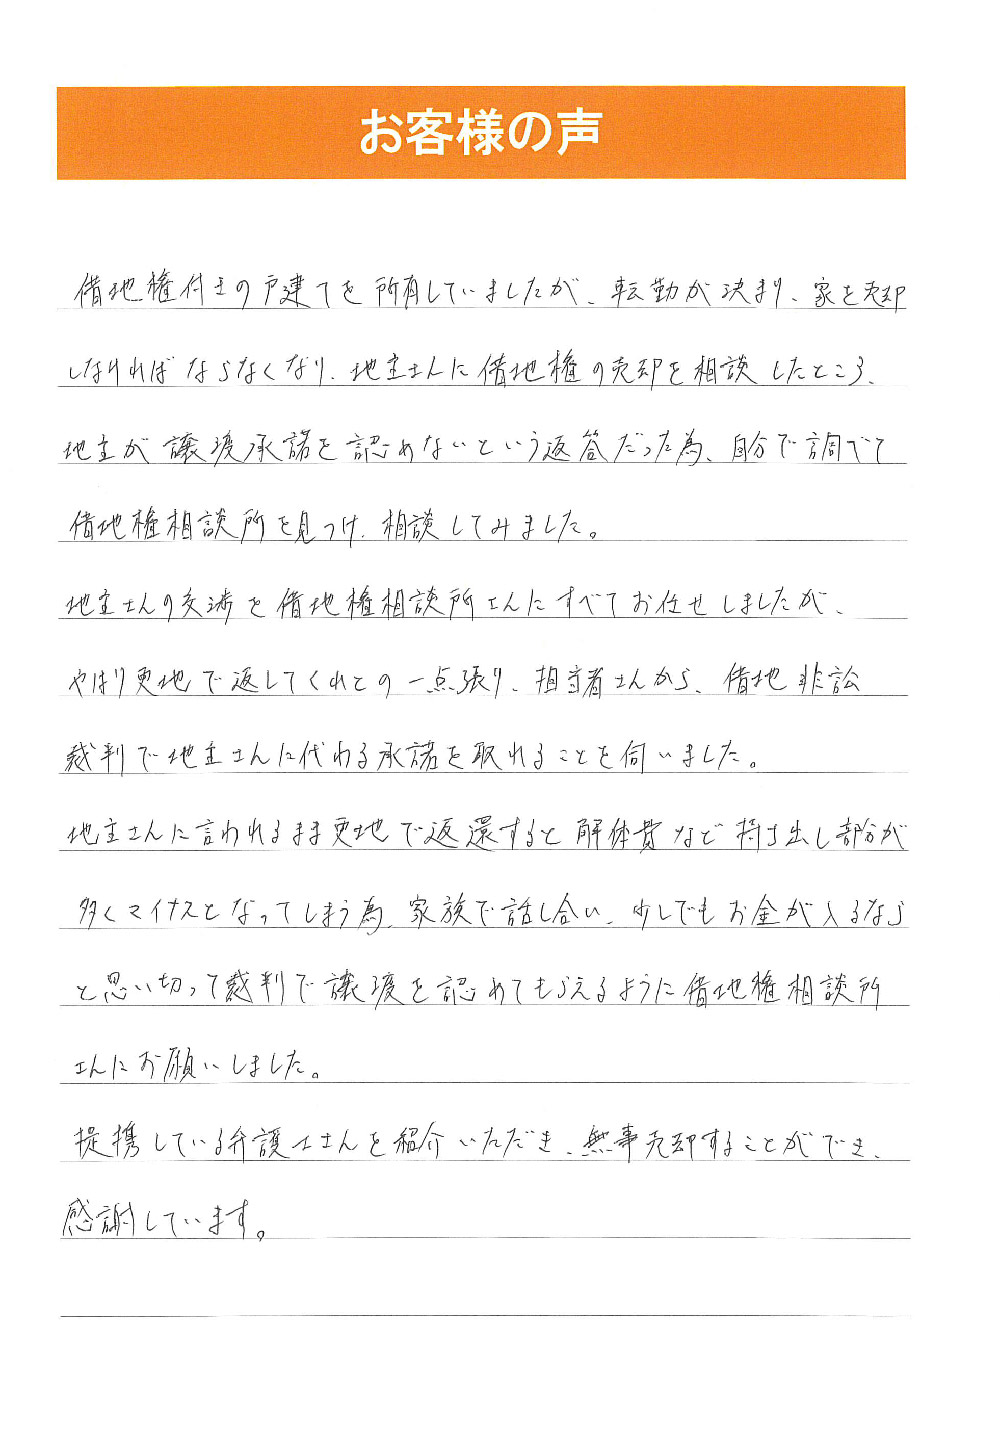 お客様の声
借地権付きの戸建てを所有していましたが、転勤が決まり、家を売却
しなければならなくなり、地主さんに借地権の売却を相談したところ、
地主が譲渡承諾を認めないという返答だった為、自分で調べて
借地権相談所を見つけ、相談してみました。
地主さんの交渉を借地権相談所さんにすべてお任せしましたが、
やはり更地で返してくれとの一点張り、担当者さんから、借地非訟
裁判で地主さんに代わる承諾を取れることを伺いました。
地主さんに言われるまま更地で返還すると解体費など持ち出し部分が
多くマイナスとなってしまう為、家族で話し合い、少しでもお金が入るなら
と思い切って裁判で譲渡を認めてもらえるように借地権相談所
さんにお願いしました。
提携している弁護士さんを紹介いただき、無事売却することができ、
感謝しています。